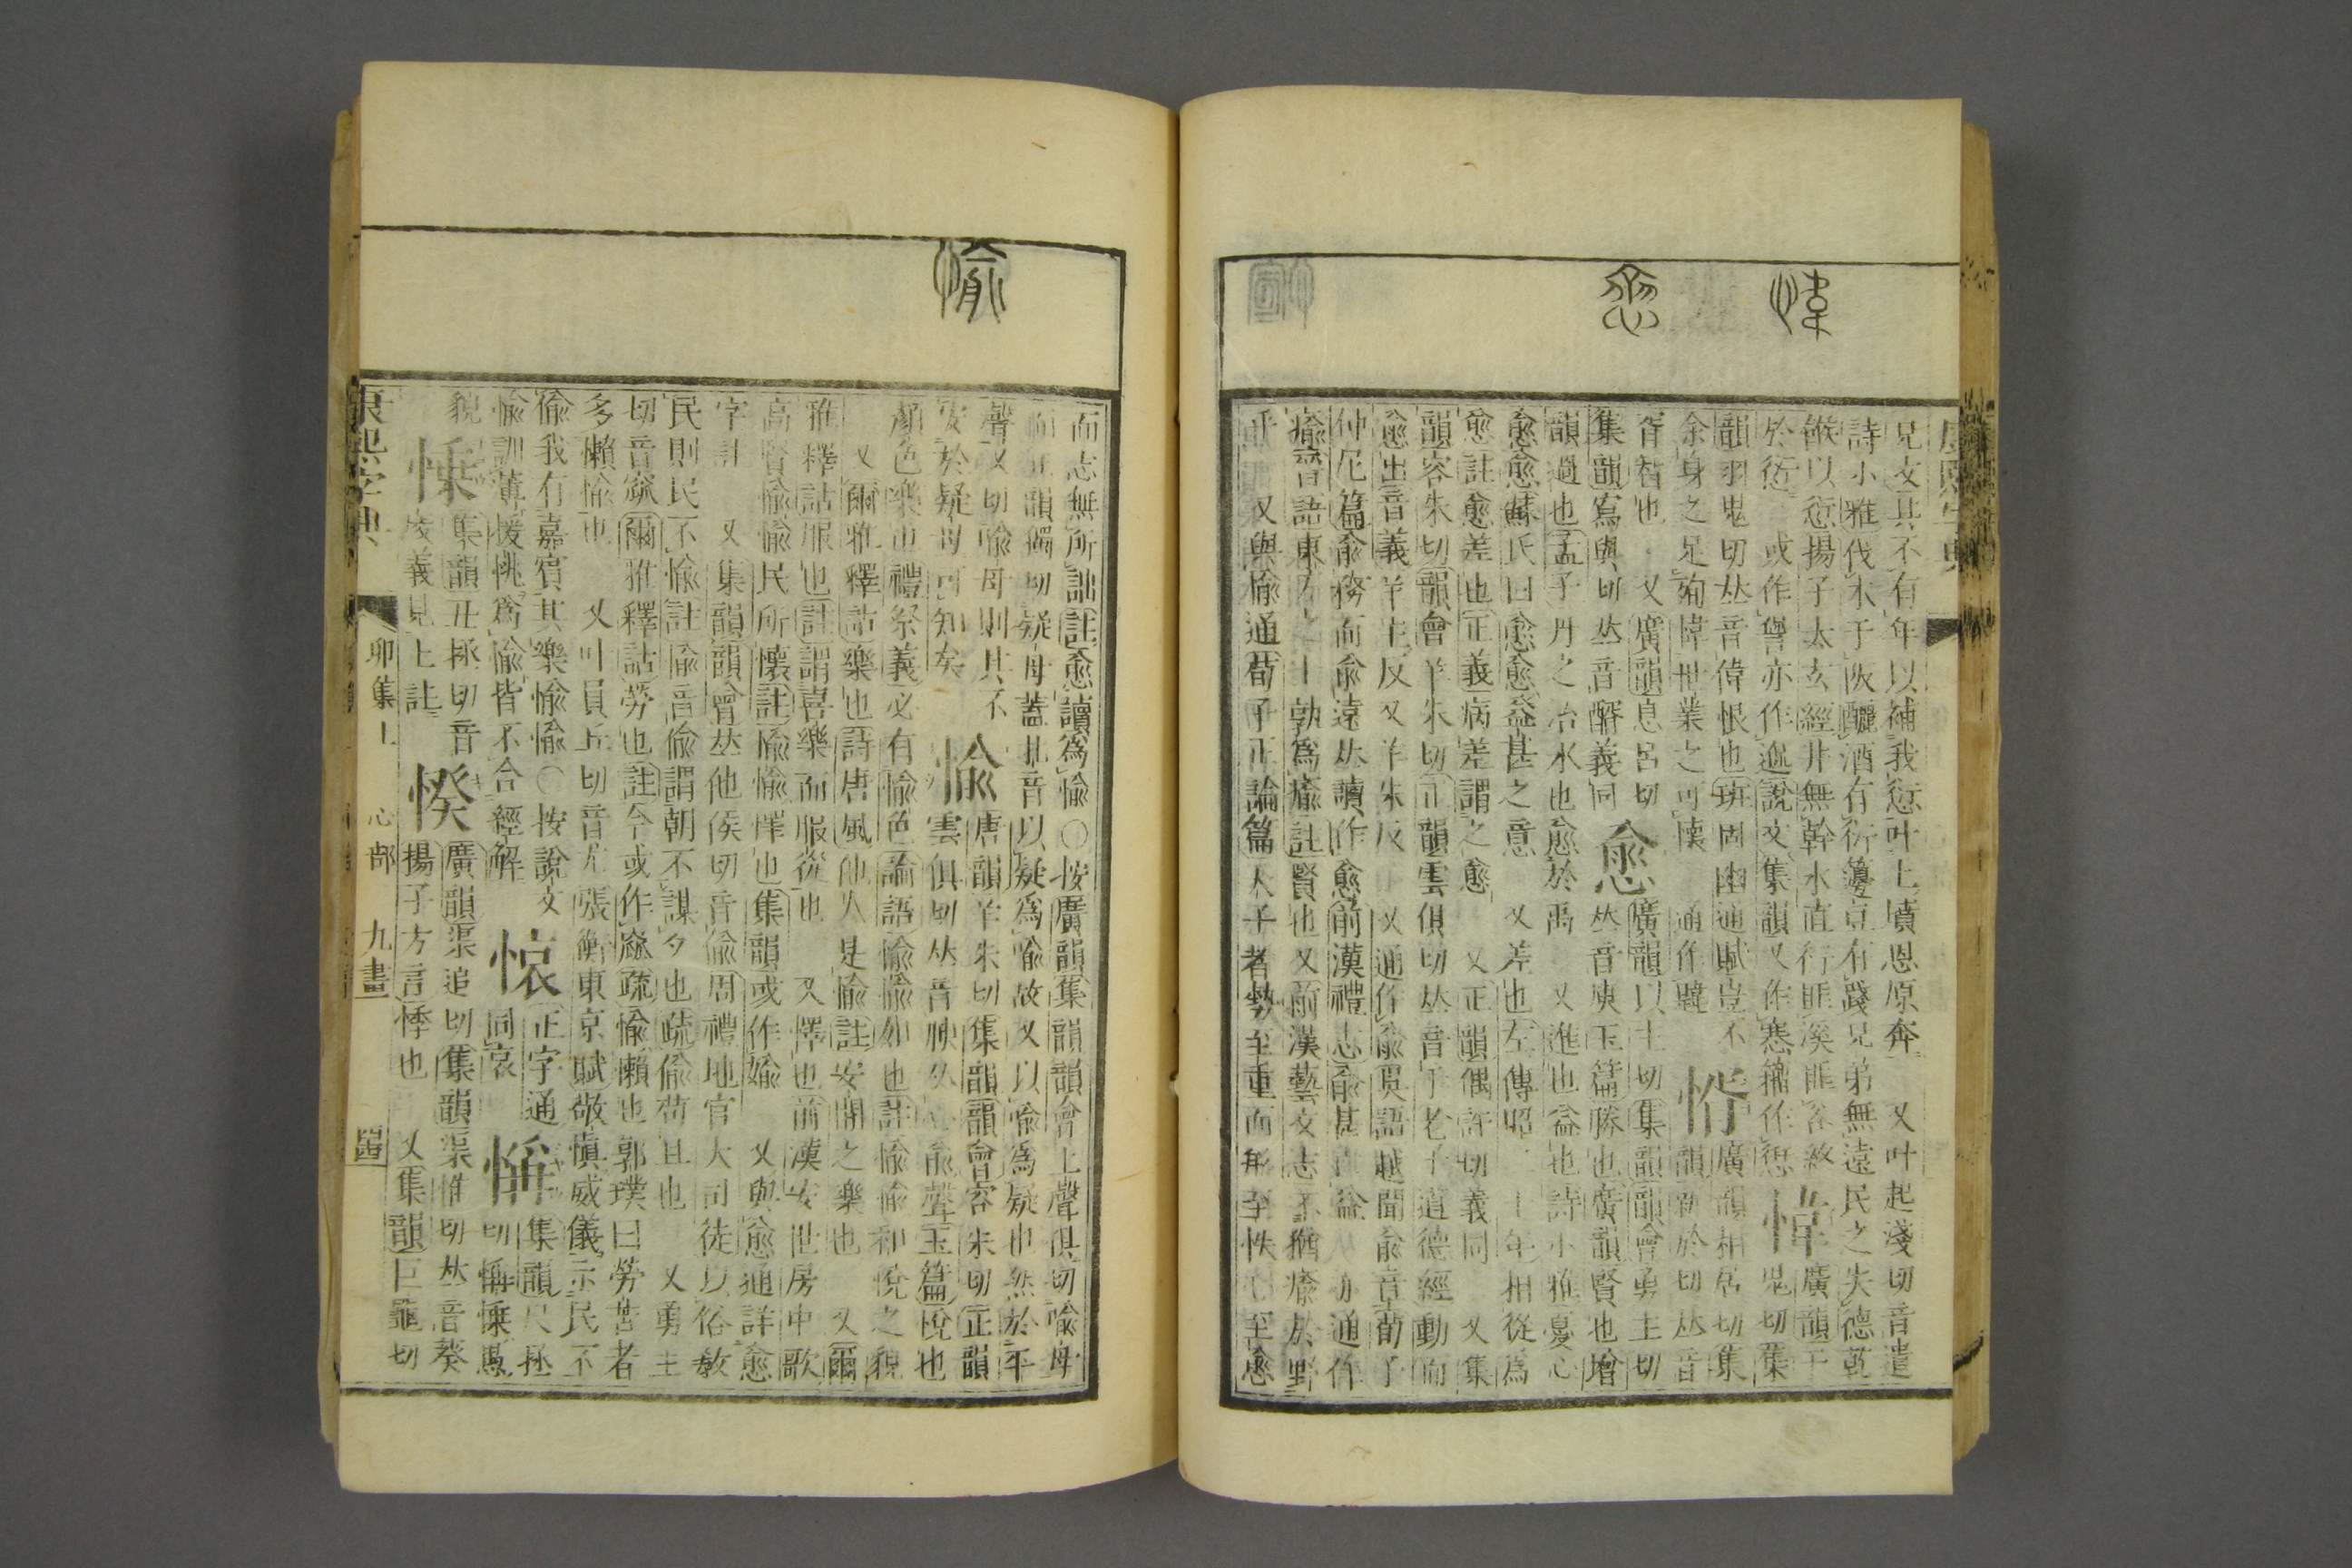 愆
愈
愇
兄文其不有年以補我愆叶上墳恩原奔 又叶起淺切音遣
詩小雅伐木于阪釃酒有衍籩豆有踐兄弟無遠民之失德乾
餱以愆揚子太玄經井無幹水直行匪谿匪谷終
於愆 或作諐亦作𠎝說文集韻又作𡫼籀作𠍴 愇 廣韻于鬼切集
韻羽鬼切𠀤音偉恨也班固幽通賦豈不
余身之足殉愇世業之可懷 通作韙 㥠 廣韻相居切集韻新於切𠀤音
胥智也 又廣韻息呂切
集韻寫與切𠀤音醑義同 愈 廣韻以主切集韻韻會勇主切𠀤音庾玉篇勝也廣韻賢也增
韻過也孟子丹之治水也愈於禹 又進也益也詩小雅憂心
愈愈蘇氏曰愈愈益甚之意 又差也左傳昭二十年相從爲
愈註愈差也正義病差謂之愈 又正韻偶許切義同 又集
韻容朱切韻會羊朱切正韻雲俱切𠀤音于老子道德經動而
愈出音義羊主反又羊朱反 又通作兪吳語越聞兪章荀子
仲尼篇兪務而兪遠𠀤讀作愈前漢禮志兪甚 亦通作
瘉晉語東方之士孰爲瘉註賢也又前漢藝文志不猶瘉於野
乎 又與愉通荀子正論篇天子者勢至重而形至佚心至愈
愉
而志無所詘註愈讀爲愉〇按廣韻集韻韻會上聲俱切喩母
而正韻獨切疑母蓋北音以疑爲喩故又以喩爲疑也然於平
聲又切喩母則其不
安於疑母可知矣 愉 唐韻羊朱切集韻韻會容朱切正韻雲俱切𠀤音臾 玉篇悅也
顏色樂也禮祭義必有愉色論語愉愉如也註愉愉和悅之貌
又爾雅釋詁樂也詩唐風他人是愉註安閒之樂也 又爾
雅釋詁服也註謂喜樂而服從也 又懌也前漢安世房中歌
高賢愉愉民所懷註愉愉懌也集韻或作婾 又與愈通詳愈
字註 又集韻韻會𠀤他侯切音偸周禮地官大司徒以俗敎
民則民不愉註愉音偷謂朝不謀夕也疏偷苟且也 又勇主
切音窳爾雅釋詁勞也註今或作窳疏愉懶也郭璞曰勞苦者
多懶愉也 又叶員丘切音尤張衡東京賦敬愼威儀示民不
偷我有嘉賓其樂愉愉〇按說文
愉訓薄後恌爲愉皆不合經解 㥆 正字通同哀 㥉 集韻尺拯切㥉㥄愚
貌 㥄 集韻丑拯切音 㥄義見上註 㥣 廣韻渠追切集韻渠惟切𠀤音葵
揚子方言悸也 又集韻巨龜切
康熙字典 卯集上 心部 九畫